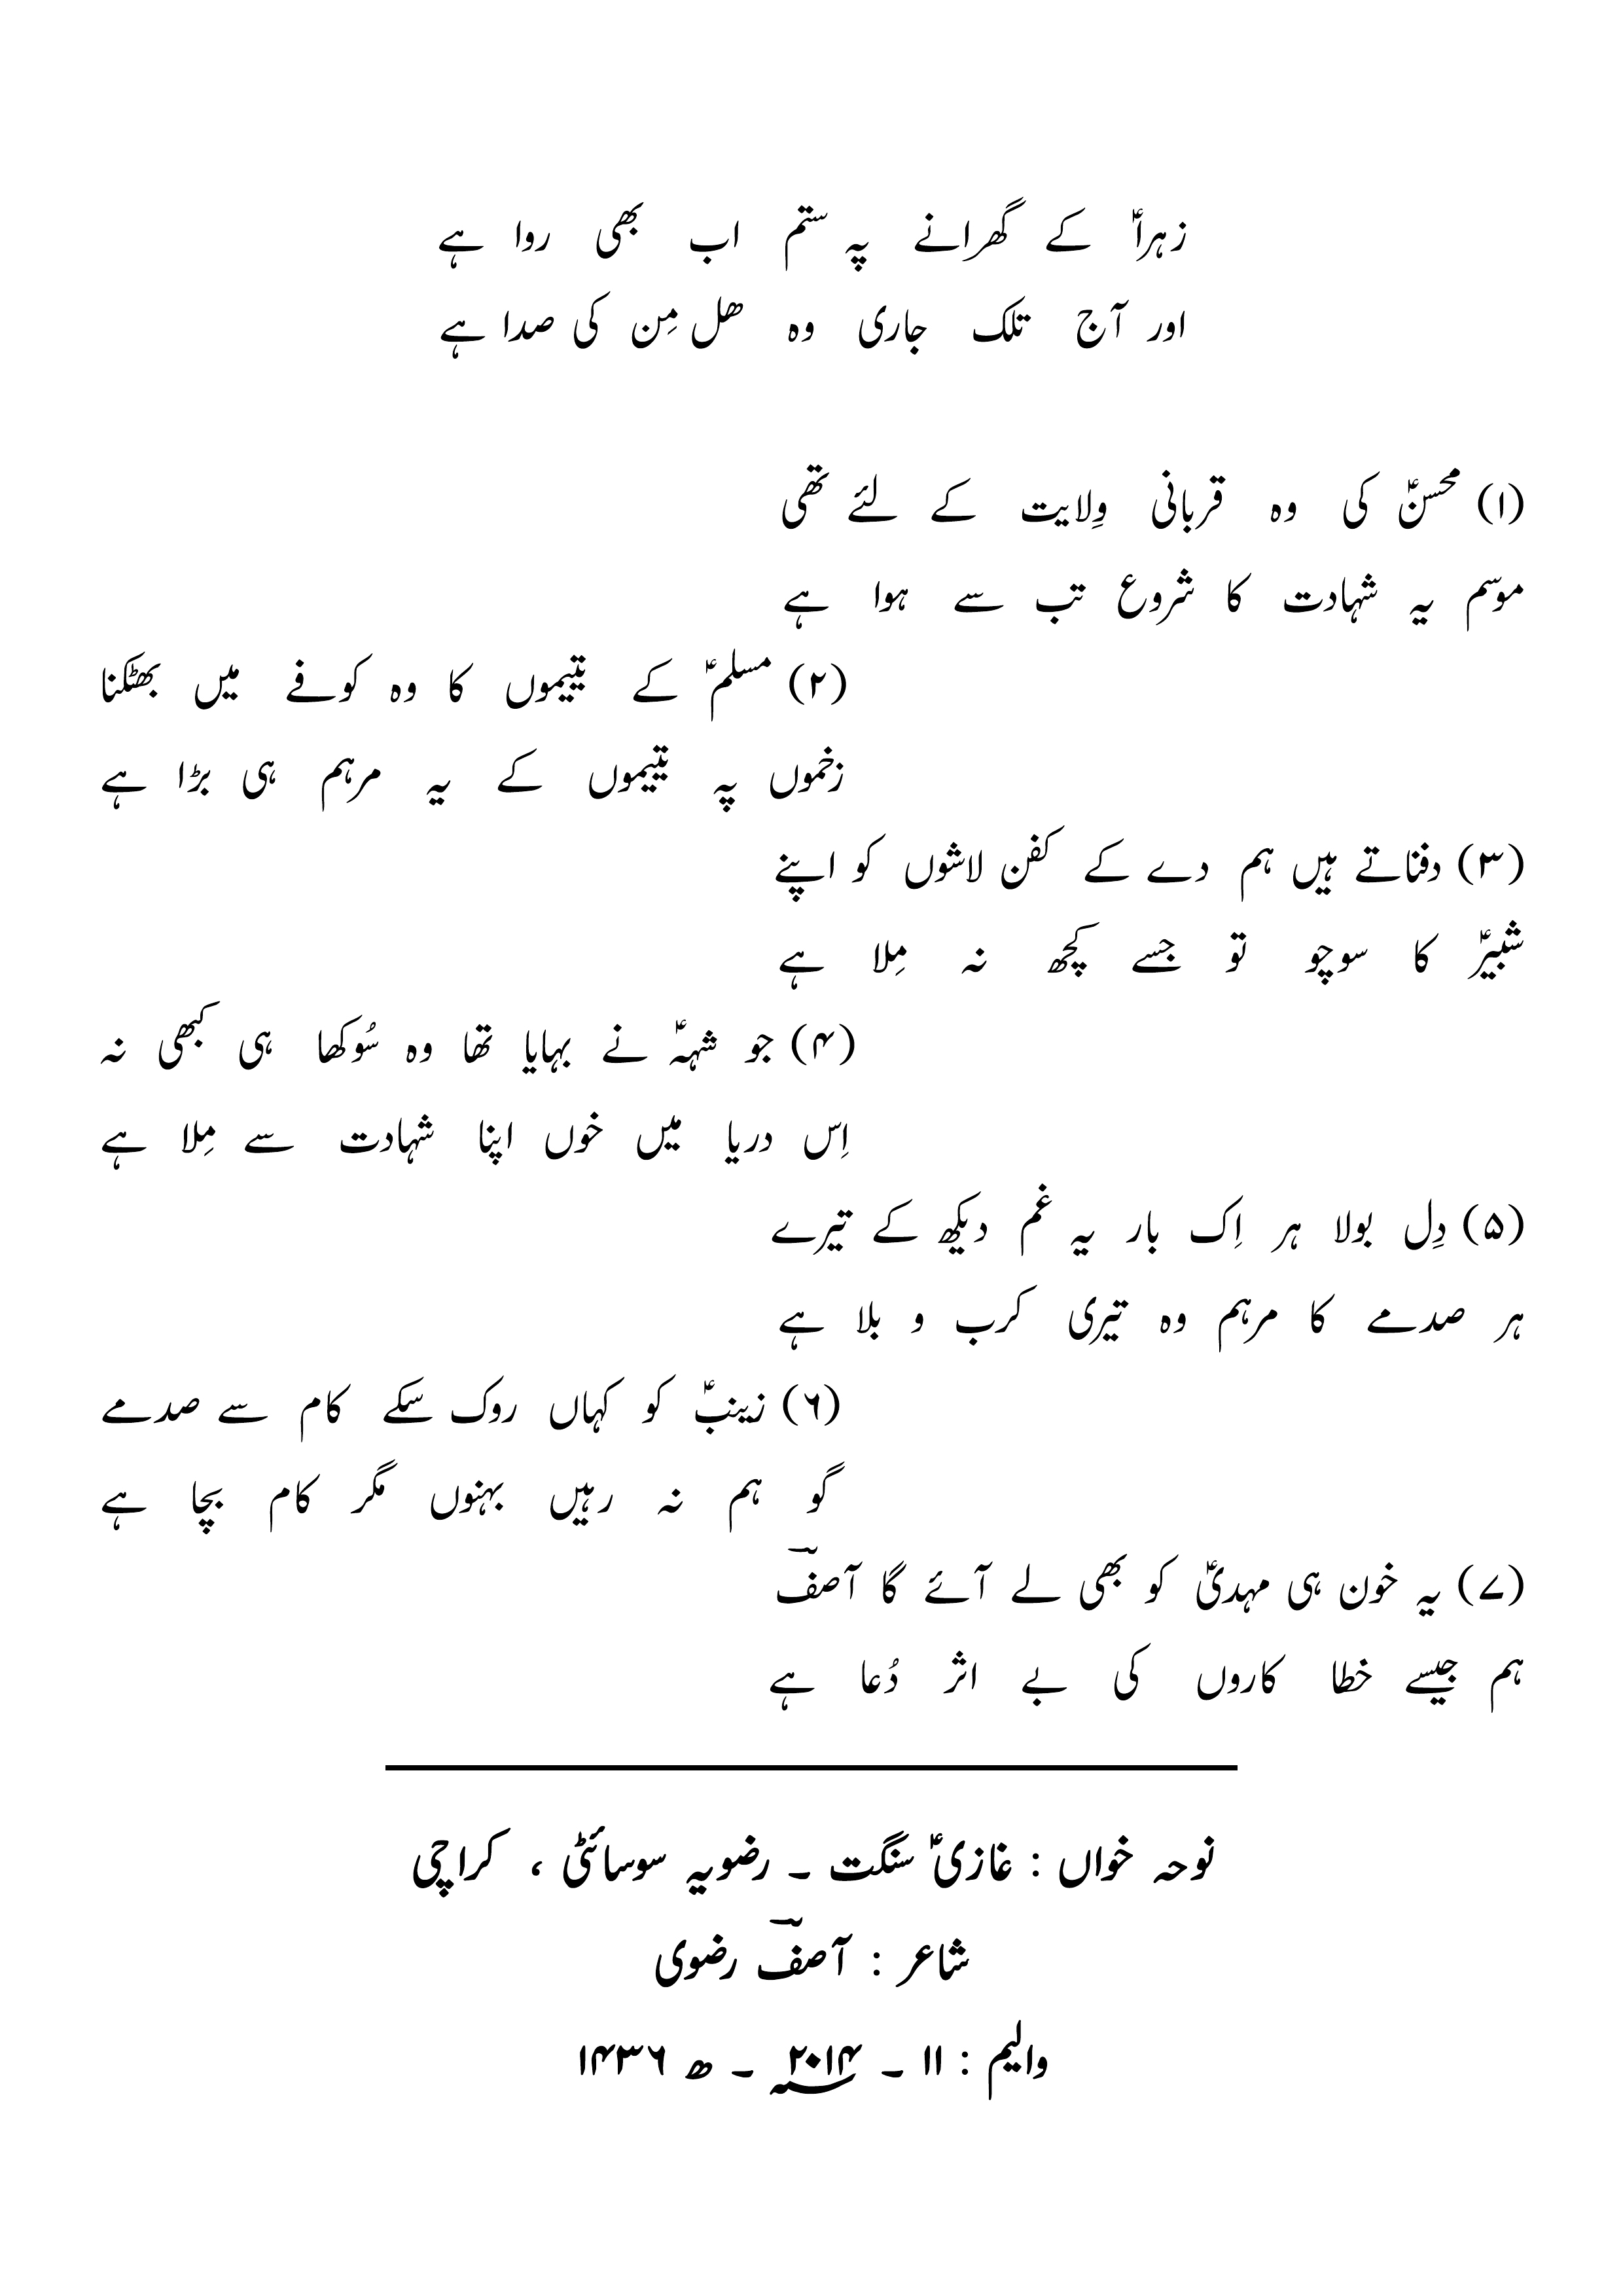 زہراؑ کے گھرانے پہ ستم اب بھی روا ہے
اور آج تلک جاری وہ ھل مِن کی صدا ہے
(۱) محسنؑ کی وہ قربانی وِلایت کے لئے تھی
موسم یہ شہادت کا شروع تب سے ہوا ہے
(۲) مسلمؑ کے یتیموں کا وہ کوفے میں بھٹکنا
زخموں پہ یتیموں کے یہ مرہم ہی بڑا ہے
(۳) دفناتے ہیں ہم دے کے کفن لاشوں کو اپنے
شبیرؑ کا سوچو تو جسے کچھ نہ مِلا ہے
(۴) جو شہہؑ نے بہایا تھا وہ سُوکھا ہی کبھی نہ
اِس دریا میں خوں اپنا شہادت سے مِلا ہے
(۵) دِل بولا ہر اِک بار یہ غم دیکھ کے تیرے
ہر صدمے کا مرہم وہ تیری کرب و بلا ہے
(۶) زینبؑ کو کہاں روک سکے کام سے صدمے
گو ہم نہ رہیں بہنوں مگر کام بچا ہے
(۷) یہ خون ہی مہدیؑ کو بھی لے آئے گا آصفؔ
ہم جیسے خطا کاروں کی بے اثر دُعا ہے
نوحہ خواں : غازیؑ سنگت ۔ رضویہ سوسائٹی ، کراچی
شاعر : آصفؔ رضوی
والیم : ۱۱ ۔ ۲۰۱۴؁ ۔ ھ ۱۴۳۶